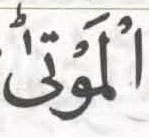 الْمَوْتٰىؕ